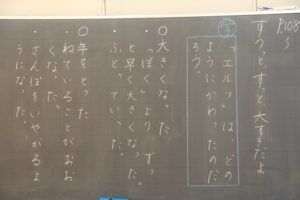 P.108
S
ずうっと、ずっと、大すきだよ
「エルフ」は、どの
ようにかわったのだ
ろう
○大きくなった。
・「ぼく」より、ずっ
と早く大きくなった。
・ふとっていった。
○年をとった
・ねていることがおお
くなった。
・さんぽをいやがるよ
うになった。